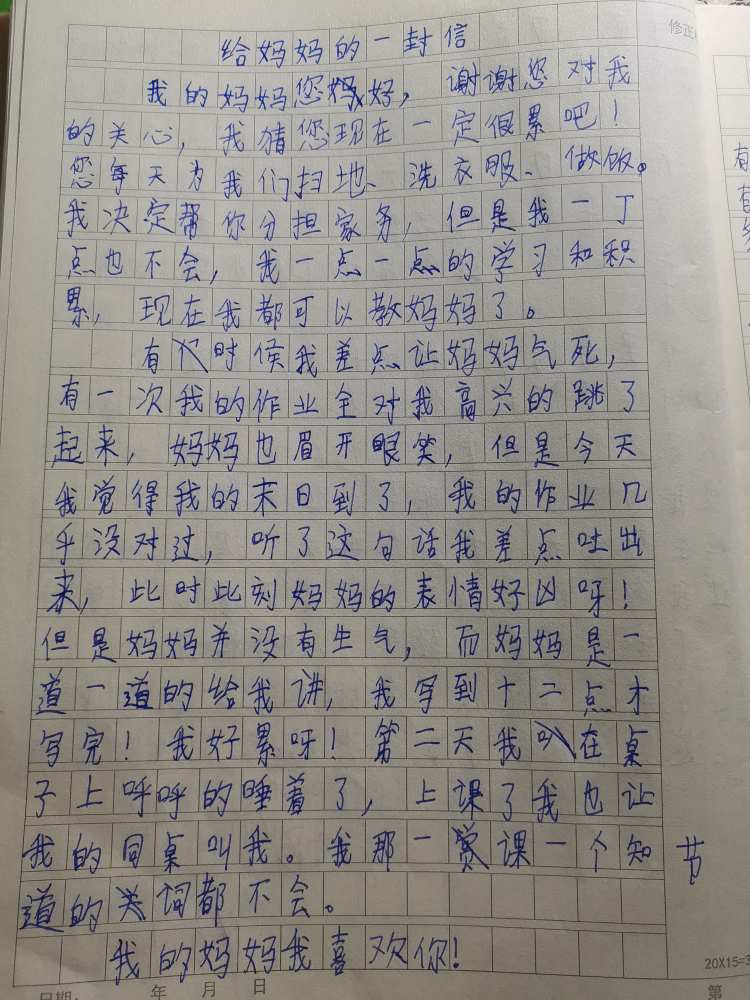 给妈妈的一封信
我的妈妈您好，谢谢您对我
的关心，我猜您现在一定很累吧！
您每天为我们扫地、洗衣服、做饭。
我决定帮你分担家务，但是我一丁
点也不会，我一点一点的学习和积
累，现在我都可以教妈妈了。
有时候我差点让妈妈气死，
有一次我的作业全对我高兴的跳了
起来，妈妈也眉开眼笑，但是今天
我觉得我的末日到了，我的作业几
乎没对过，听了这句话我差点吐出
来，此时此刻妈妈的表情好凶呀！
但是妈妈并没有生气，而妈妈是一
道一道的给我讲，我写到十二点才
写完！我好累呀！第二天我在桌
子上呼呼的睡着了，上课了我也让
我的同桌叫我。我那一节课一个知
道的词都不会。
我的妈妈我喜欢你！
日期： 年 月 日 第
20X15=3
修正